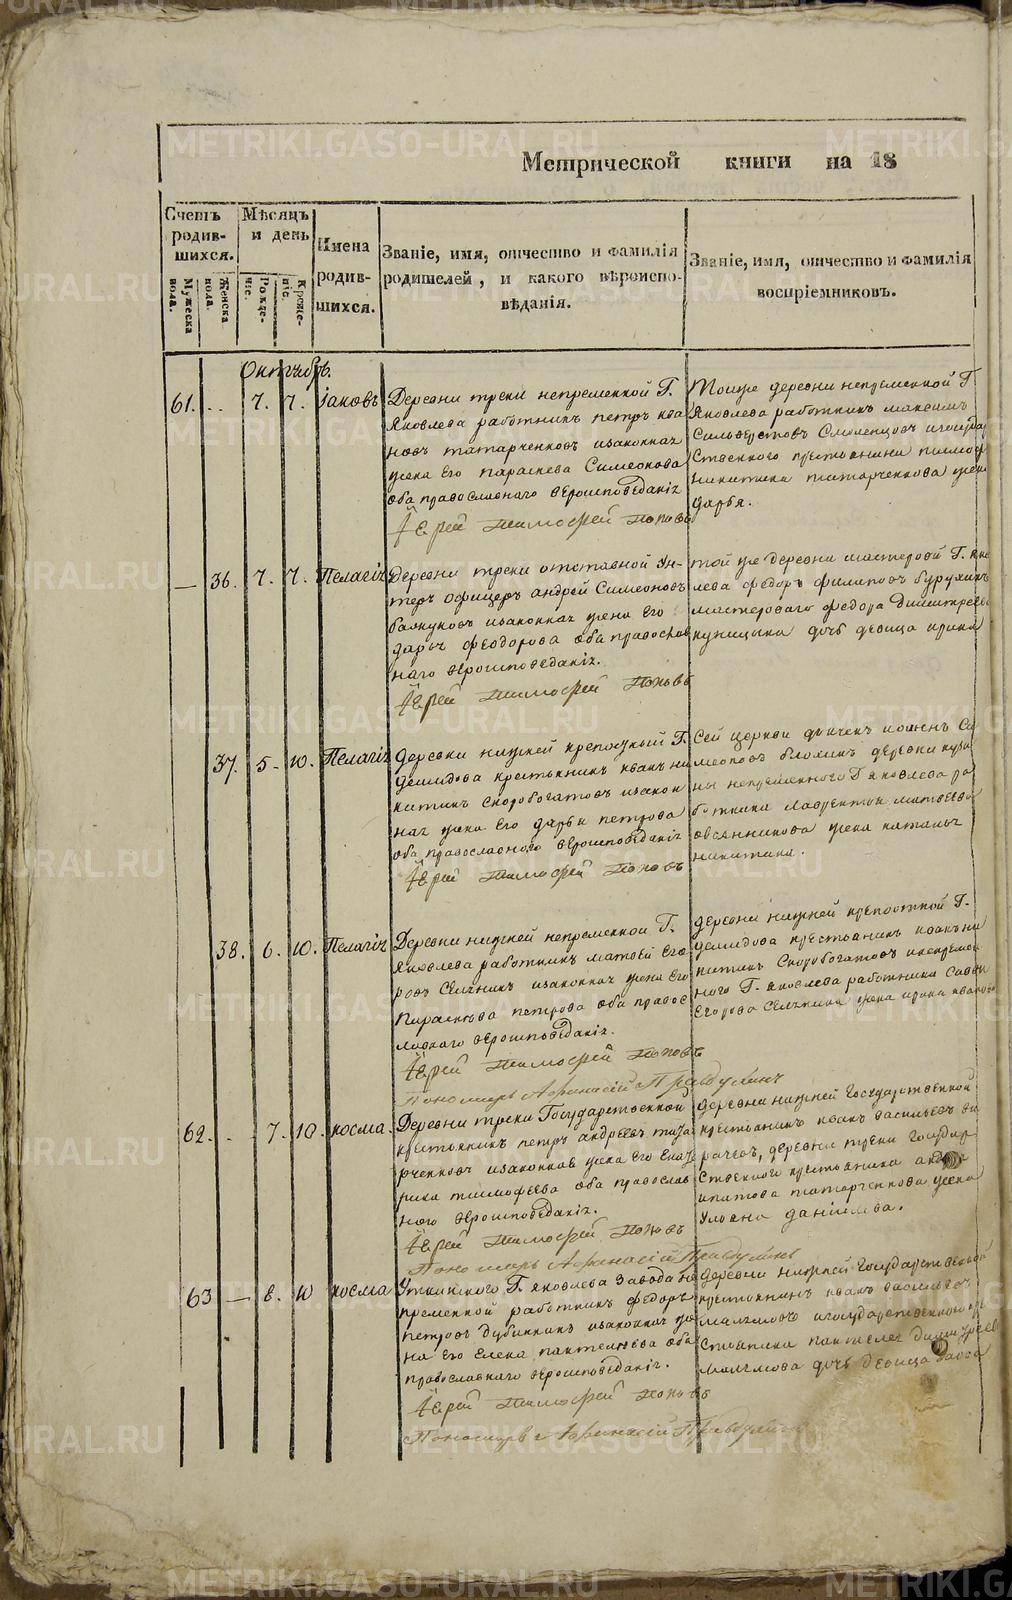 Метрической книги на 18
Счетъ родив-шихся.
Мужеска пола.
Женска пола.
Мѣсяцъ и день
Рожде-нія.
Креще-нія.
Имена родив-шихся.
Званіе, имя, отчество и фамилія
родителей, и какого вѣроиспо-
вѣданія.
Званіе, имя, отчество и фамилія
воспріемниковъ.
Октябрь.
61. .. 7. 7. Іаковъ
Деревни треки непременной Г.
Яковлева работникъ петръ ива
новъ татарченковъ изаконная
жена Его параскева Симеонова
оба православнаго вероисповеданія
Іерей Тимофей Поповъ
Тоиже деревни непременной Г
Яковлева работникъ максимъ
Сильверстовъ
ственного крестьянина
никитина татарченкова жена
дарья.
— 36. 7. 7. Пелагія
Деревни треки отставной ун-
теръ офицеръ андрей Симеоновъ
изаконная жена Его
дарья феодорова оба православ
наго вероисповеданія.
Іерей Тимофей Поповъ
той же деревни мастеровой Г. яко
лева федоръ филиповъ бурухинъ
мастероваго федора дмитреева
дочь девица ирина
37. 5. 10. Пелагія
Деревни нижней крепосный Г.
демидова крестьянинъ иванъ ни
китинъ скоробогатовъ изакон
ная жена Его дарья петрова
оба православного вероисповеданія
Іерей Тимофей Поповъ
Сей церкви дьячекъ иоаннъ Си
меоновъ деревни
ны непременного Г яковлева ра
ботника лаврентия матвеева
овсянникова жена
никитина.
38. 6. 10. Пелагія
Деревни нижней непременной Г.
Яковлева работникъ матвей Его
ровъ изаконная жена Его
Параскева петрова оба правос
лавнаго вероисповеданія.
Іерей Тимофей Поповъ
Пономарь Афанасій Правдухинъ
деревни нижней крепостной Г.
демидова крестьянинъ иванъ ни
китинъ Скоробогатовъ инепремен
ного Г. яковлева работника
Егорова жена ирина иванова
62. . - 7. 10. косма.
Деревни треки Государственной
крестьянинъ петръ андреевъ тата
рченковъ изаконная жена Его Екате
рина тимофеева оба православ
ного вероисповеданія.
Іерей Тимофей Поповъ
Пономарь Афанасій Правдухинъ
деревни нижней Государственной
крестьянинъ иванъ васильевъ
деревни треки государ
ственного крестьянина
ипатова татарченкова жена
Ульяна даніилова.
63 — 8. 10 косма
Уткинского Г. яковлева завода не
пременной работникъ федоръ
петровъ дубининъ изаконная же
на его Елена пантелеева оба
православнаго вероисповеданія.
Іерей Тимофей Поповъ
Пономарь Афанасій Правдухинъ
деревни нижней Государственной
крестьянинъ иванъ васильевъ
игосударственного кре
стьянина
дочь девица
METRIKI.GASO-URAL.RU